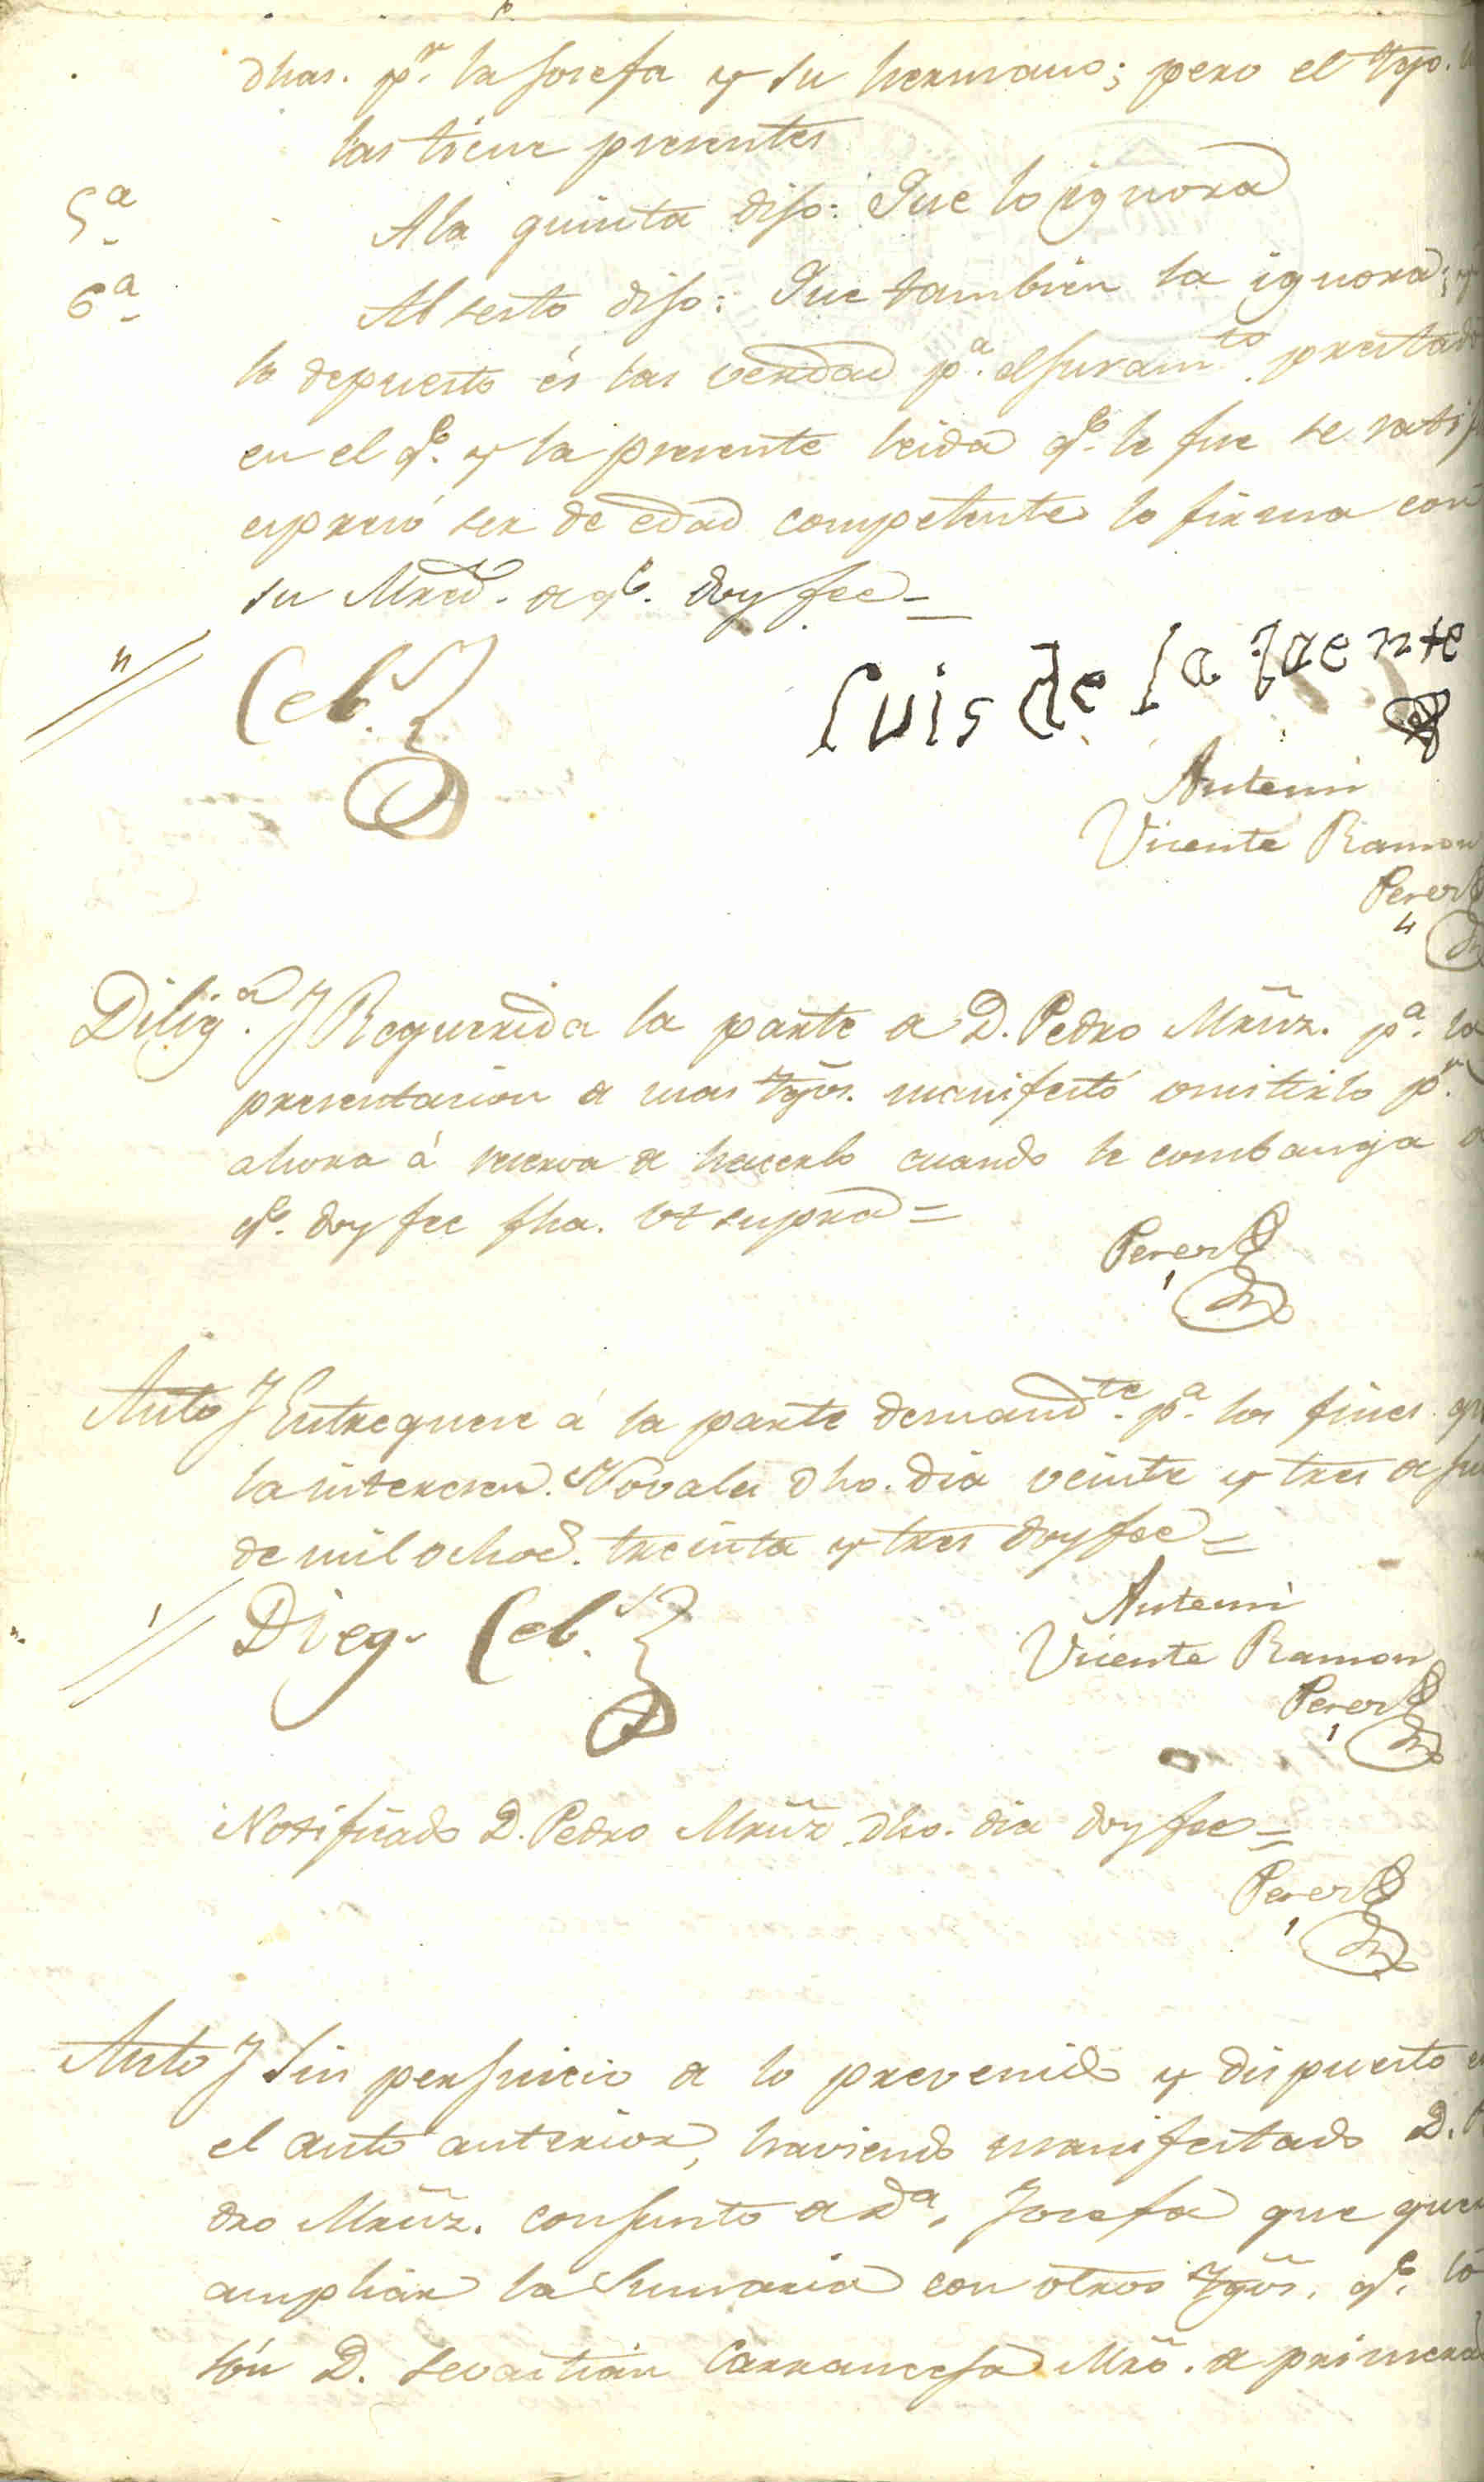 dhas. pr. la Josefa y su hermano; pero el tgo. 
las tiene presentes
5a. A la quinta dijo: Que lo ignora
6a. Al sesto dijo: Que tambien la ignora; y
lo depuesto és las verdad pa. el juramto. prestado
en el qe. y la presente leida qe. le fue se ratif
espresó ser de edad competente lo firma con
su Mrcd. de qe. doy fee =
Ceb.
Luis de la fuente
Antemi
Vicente Ramon
Perez
Dilig.a Requerida la parte de D. Pedro Mrñz. pa. la
presentacion de mas tgõs. manifestó omitirlo pr.
ahora á reserva de hacerlo cuando le combanga de
qe. doy fee fha. ut supra =
Perez
Auto Entreguese á la parte demandte. pa. los fines qu
la interesen. Novales dho. dia veinte y tres de Ju
de mil ochoc. treinta y tres doy fee =
Diego Ceb.
Antemi
Vicente Ramon
Perez
Notificado D. Pedro Mrñz dho. dia doy fee =
Perez
Auto Sin perjuicio de lo prevenido y dispuesto en
el auto anterior, haviendo manifestado D. Pe
dro Mrñz. conjunto de Da. Josefa que quer
ampliar la Sumaria con otros tgõs. qe. lo
són D. Sevastián Carranceja Mrõ. de primera